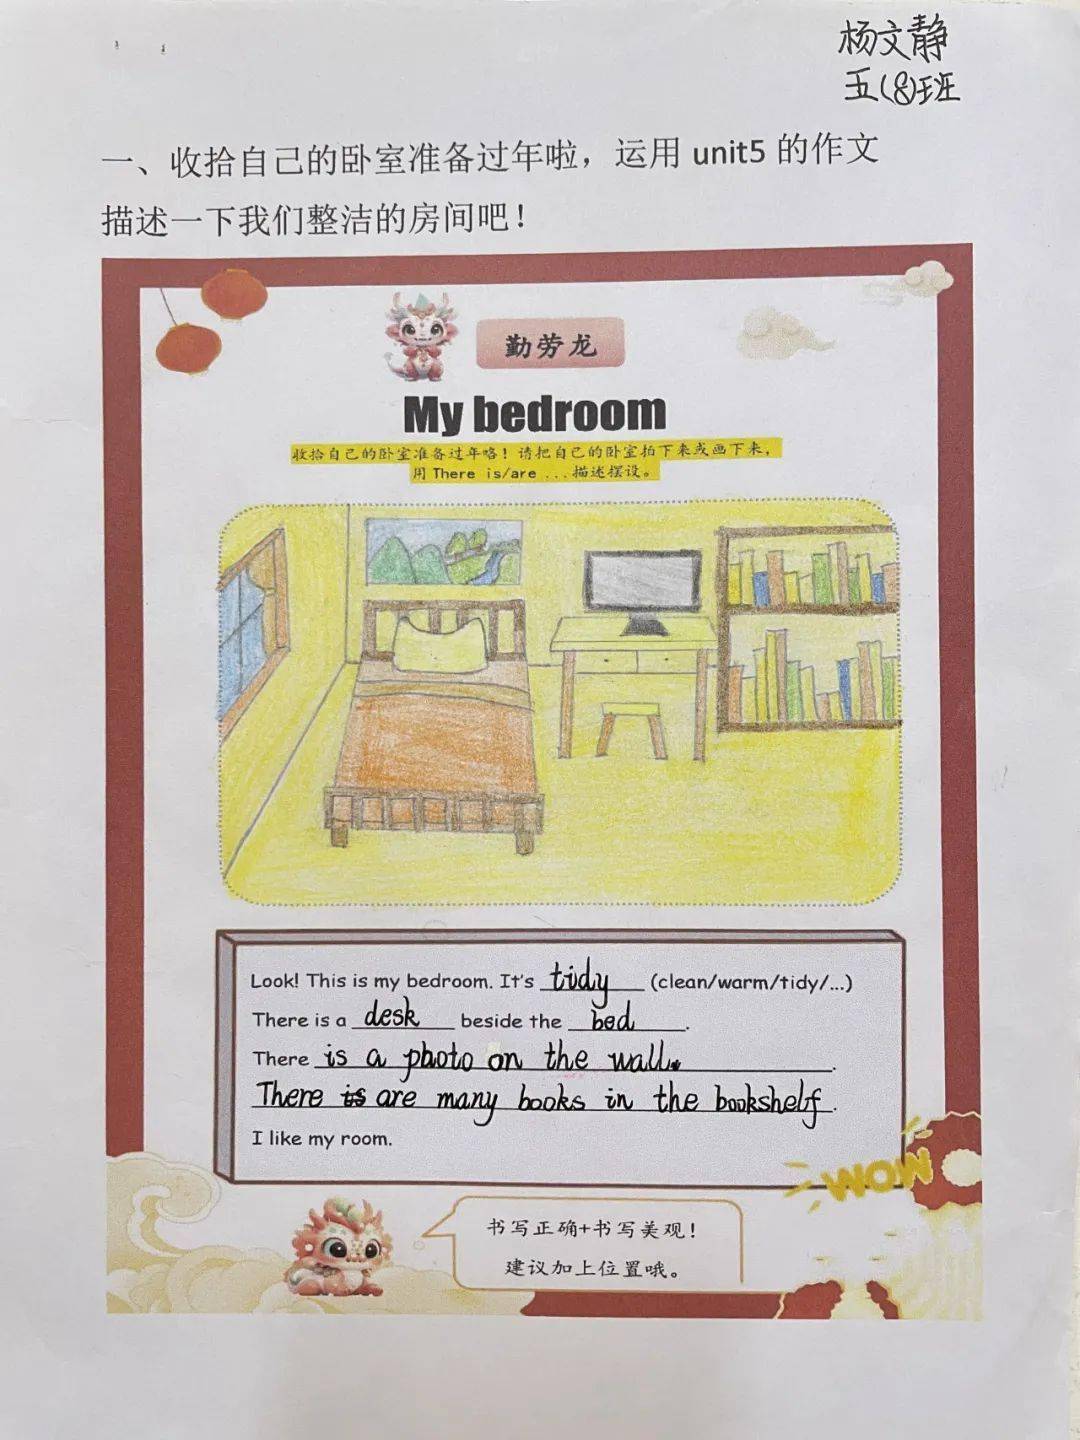 杨文静
五(8)班
一、收拾自己的卧室准备过年啦，运用 unit5 的作文
描述一下我们整洁的房间吧！
勤劳龙
My bedroom
收拾自己的卧室准备过年咯！请把自己的卧室拍下来或画下来，
用 There is/are ...描述摆设。
Look! This is my bedroom. It's tidy (clean/warm/tidy/...)
There is a desk beside the bed.
There is a photo on the wall.
There is are many books in the bookshelf.
I like my room.
WOW
书写正确+书写美观！
建议加上位置哦。